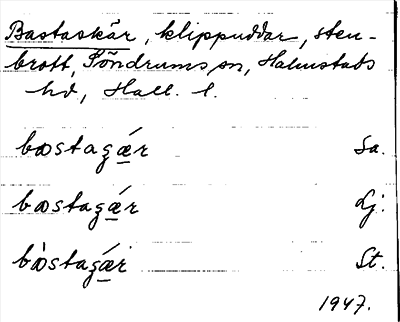 Bastaskär, klippuddar, sten-
brott, Söndrums sn, Halmstads
hd, Hall. l.
bɷstagǽr Sa.
bɷstagǽr Lj.
bɷ̀stagǽr St.
1947.